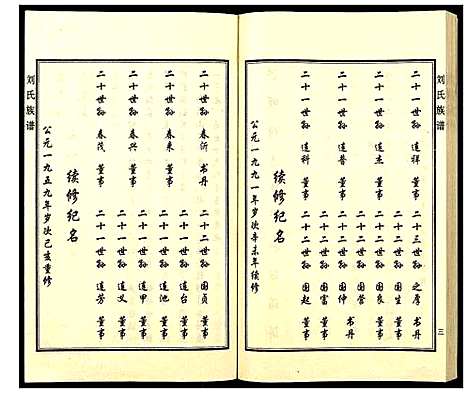 刘氏族谱
三
二十一世孙 道祥 董事 二十三世孙 之厚 书丹
二十二世孙 国生 董事
二十一世孙 道杰 董事 二十二世孙 国良 董事
二十二世孙 国管 董事
二十一世孙 道普 董事 二十二世孙 国仲 书丹
二十二世孙 国富 董事
二十一世孙 道科 董事 二十二世孙 国起 董事
续修纪名
公元一九九一年岁次辛未年续修
二十世孙 春沂 书丹 二十二世孙 国贞 董事
二十一世孙 道台 董事
二十世孙 春来 董事 二十一世孙 道池 董事
二十一世孙 道甲 董事
二十世孙 春兴 董事 二十一世孙 道义 董事
二十世孙 春茂 董事 二十一世孙 道芳 董事
续修纪名
公元一九五九年岁次己亥重修
刘氏族谱